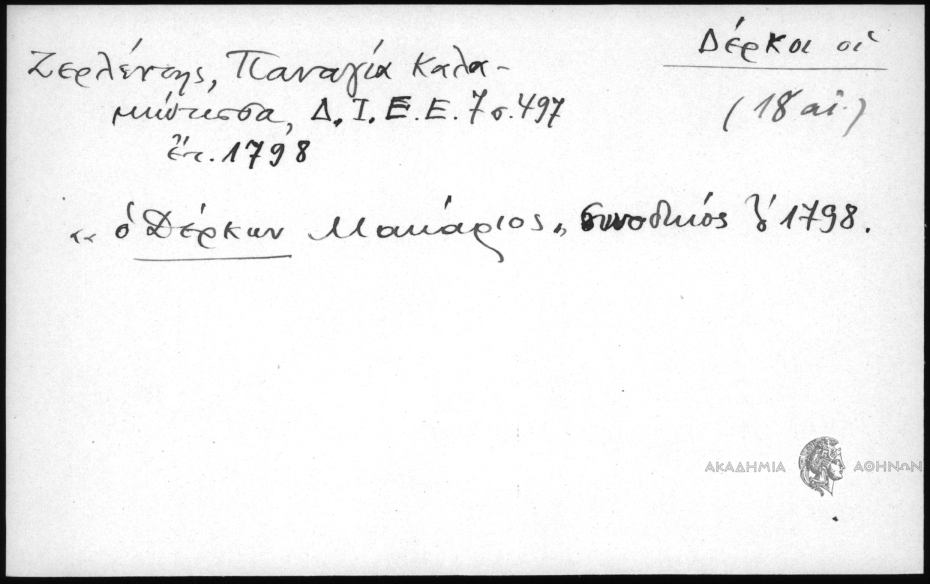 Δέρκοι οἱ
(18 αἰ.)
Ζερλέντης, Παναγία Καλα-
μιώτισσα, Δ.Ι.Ε.Ε. 7 σ. 497
ἔτ. 1798
"ὁ Δέρκων Μακάριος" συνοδικός 1798.
ΑΚΑΔΗΜΙΑ ΑΘΗΝΩΝ